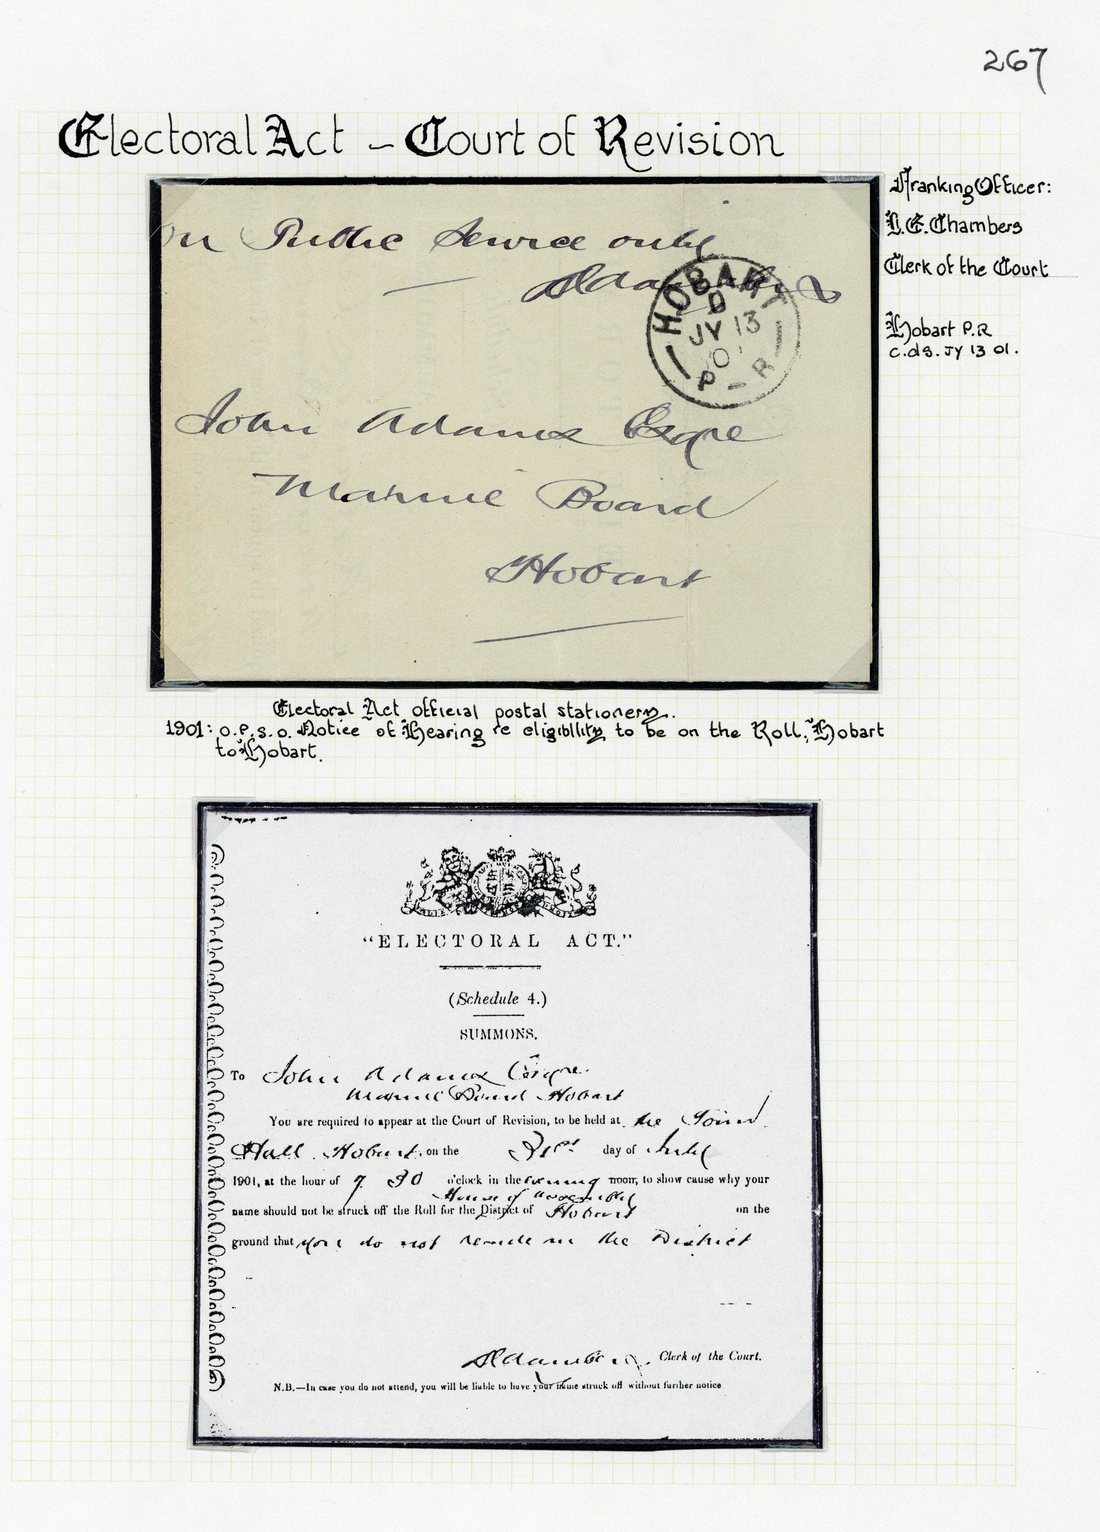 267
Electoral Act - Court of Revision
Franking Officer:
Clerk of the Court
Hobart P.R
c.ds. JY 13 01.
On Public Service only
HOBART
D
JY 13
01
P - R
John Adams Esqre
Marine Board
Hobart
Electoral Act official postal stationery.
1901: O.P.S.O. Notice of Hearing re eligibility to be on the Roll, Hobart
to Hobart.
"ELECTORAL ACT."
(Schedule 4.)
SUMMONS.
To John Adams Esqre.
Marine Board Hobart
You are required to appear at the Court of Revision, to be held at the Town
Hall Hobart, on the 31st day of July
1901, at the hour of 7 30 o'clock in the evening noon, to show cause why your
House of Assembly
name should not be struck off the Roll for the District of Hobart on the
ground that you do not reside in the District
Clerk of the Court.
N.B.—In case you do not attend, you will be liable to have your name struck off without further notice